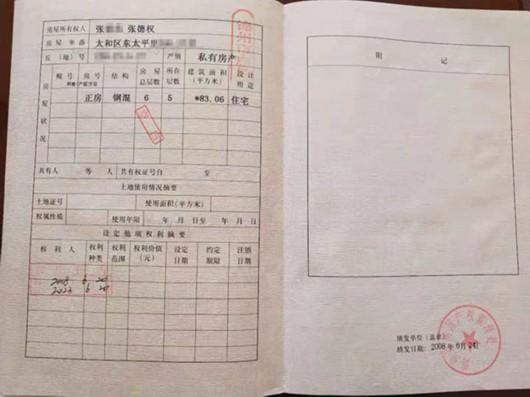 房屋所有权人 张 张德权
房屋坐落 太和区东太平里
丘（地）号 产别 私有房产
房屋状况
幢号 房号 结构 房屋总层数 所在层数 建筑面积（平方米） 设计用途
正房 钢混 6 5 *83.06 住宅
共有人 等 人 共有权证号自 至
土地使用情况摘要
土地证号 使用面积（平方米）
权属性质 使用年限 年 月 日至 年 月 日
设定他项权利摘要
权利人 权利种类 权利范围 权利价值（元） 设定日期 约定期限 注销日期
2008 6 20
附 记
填发单位（盖章）
填发日期：2008 年 6月 24日